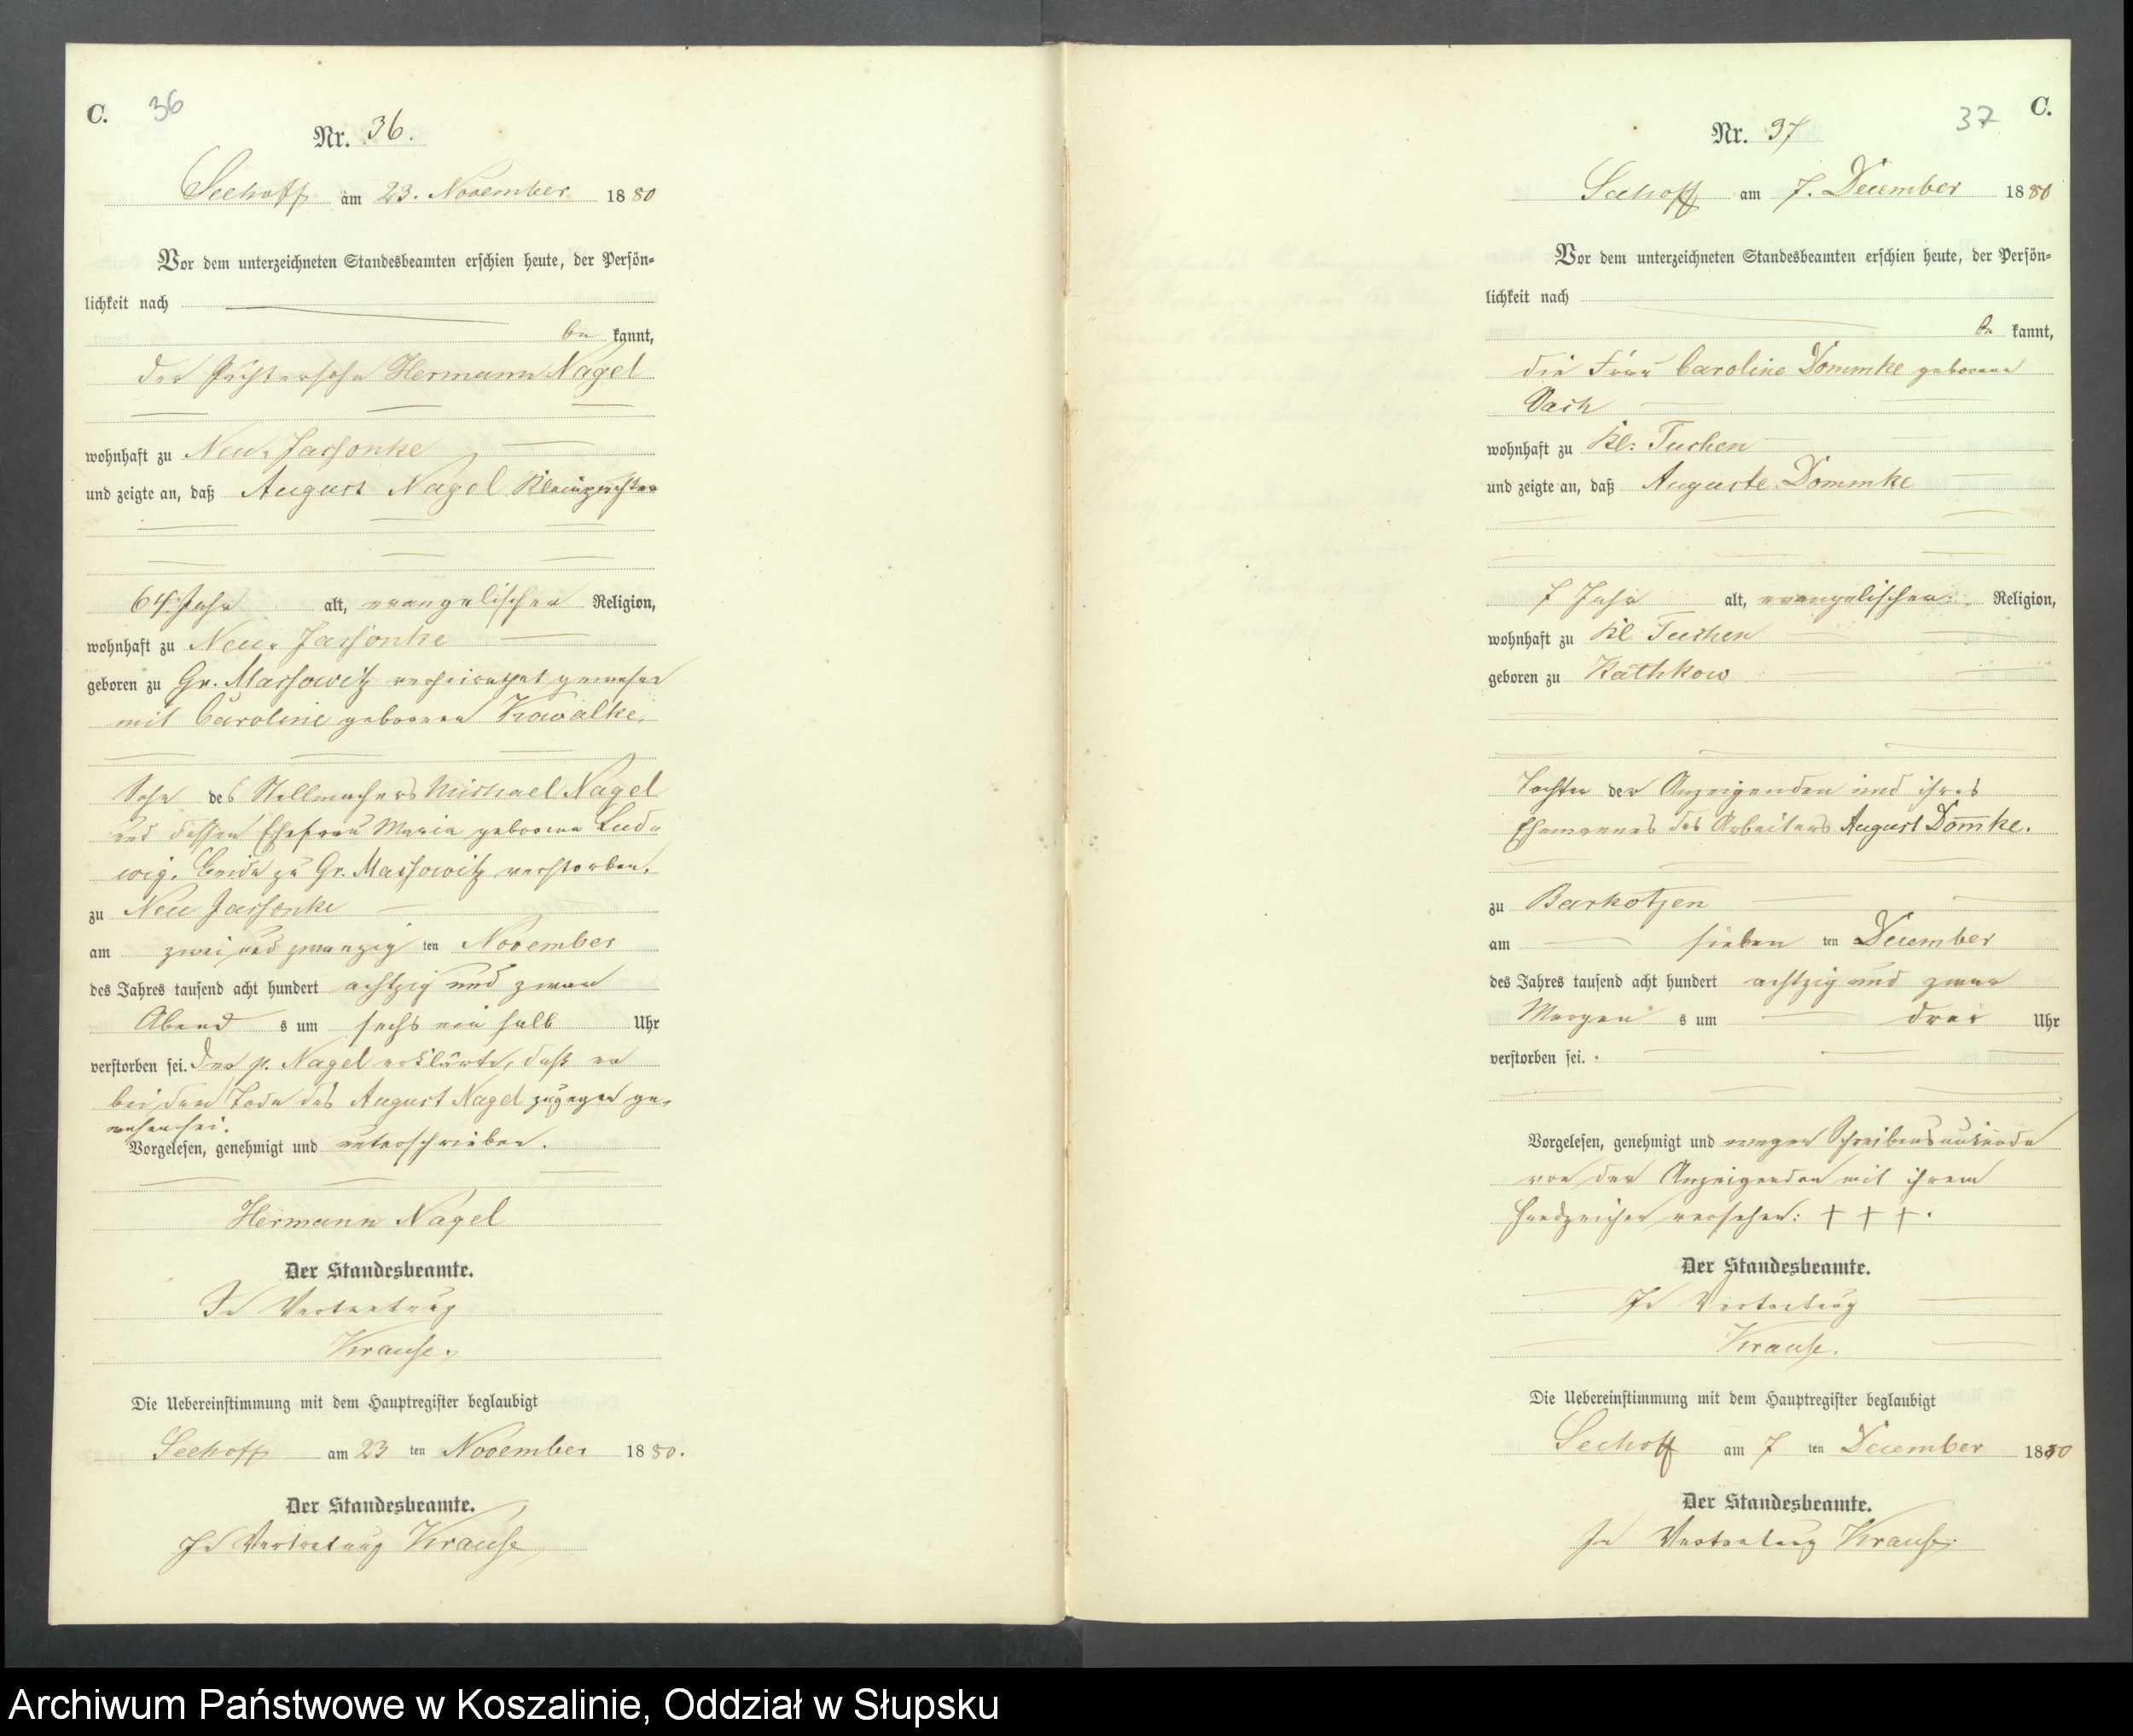 C. 36
Nr. 36.
Seehoff am 23. November 1880
Vor dem unterzeichneten Standesbeamten erschien heute, der Persön=
lichkeit nach
be kannt,
der Pächtersohn Hermann Nagel
wohnhaft zu Neu-Jassonke
und zeigte an, daß August Nagel Kleinpächter
64 Jahr alt, evangelischer Religion,
wohnhaft zu Neu-Jassonke
geboren zu Gr. Massowitz verheirathet gewesen
mit Caroline geborenen Kowalke.
Sohn des Stellmachers Michael Nagel
und dessen Ehefrau Maria geborene Lud-
wig. Beide zu Gr. Massowitz verstorben.
zu Neu Jassonke
am zwei und zwanzig ten November
des Jahres tausend acht hundert achtzig und zwar
Abend s um sechs ein halb Uhr
verstorben sei. Der p. Nagel erklärte, daß er
bei dem Tode des August Nagel zugegen ge-
wesen sei.
Vorgelesen, genehmigt und unterschrieben.
Hermann Nagel
Der Standesbeamte.
In Vertretung
Krause.
Die Uebereinstimmung mit dem Hauptregister beglaubigt
Seehoff am 23 ten November 1880.
Der Standesbeamte.
In Vertretung Krause
37 C.
Nr. 37
Seehoff am 7. December 1880
Vor dem unterzeichneten Standesbeamten erschien heute, der Persön=
lichkeit nach
be kannt,
die Frau Caroline Dommke geborene
Dach
wohnhaft zu Kl: Tuchen
und zeigte an, daß Auguste Dommke
7 Jahr alt, evangelischer Religion,
wohnhaft zu Kl. Tuchen
geboren zu Kathkow
Tochter der Anzeigenden und ihres
Ehemannes des Arbeiters August Dom̅ke.
zu Barkotzen
am sieben ten December
des Jahres tausend acht hundert achtzig und zwar
Morgen s um drei Uhr
verstorben sei.
Vorgelesen, genehmigt und wegen Schreibensunkunde
von der Anzeigenden mit ihrem
Handzeichen versehen: + + +.
Der Standesbeamte.
In Vertretung
Krause.
Die Uebereinstimmung mit dem Hauptregister beglaubigt
Seehoff am 7 ten December 1880
Der Standesbeamte.
In Vertretung Krause.
Archiwum Państwowe w Koszalinie, Oddział w Słupsku